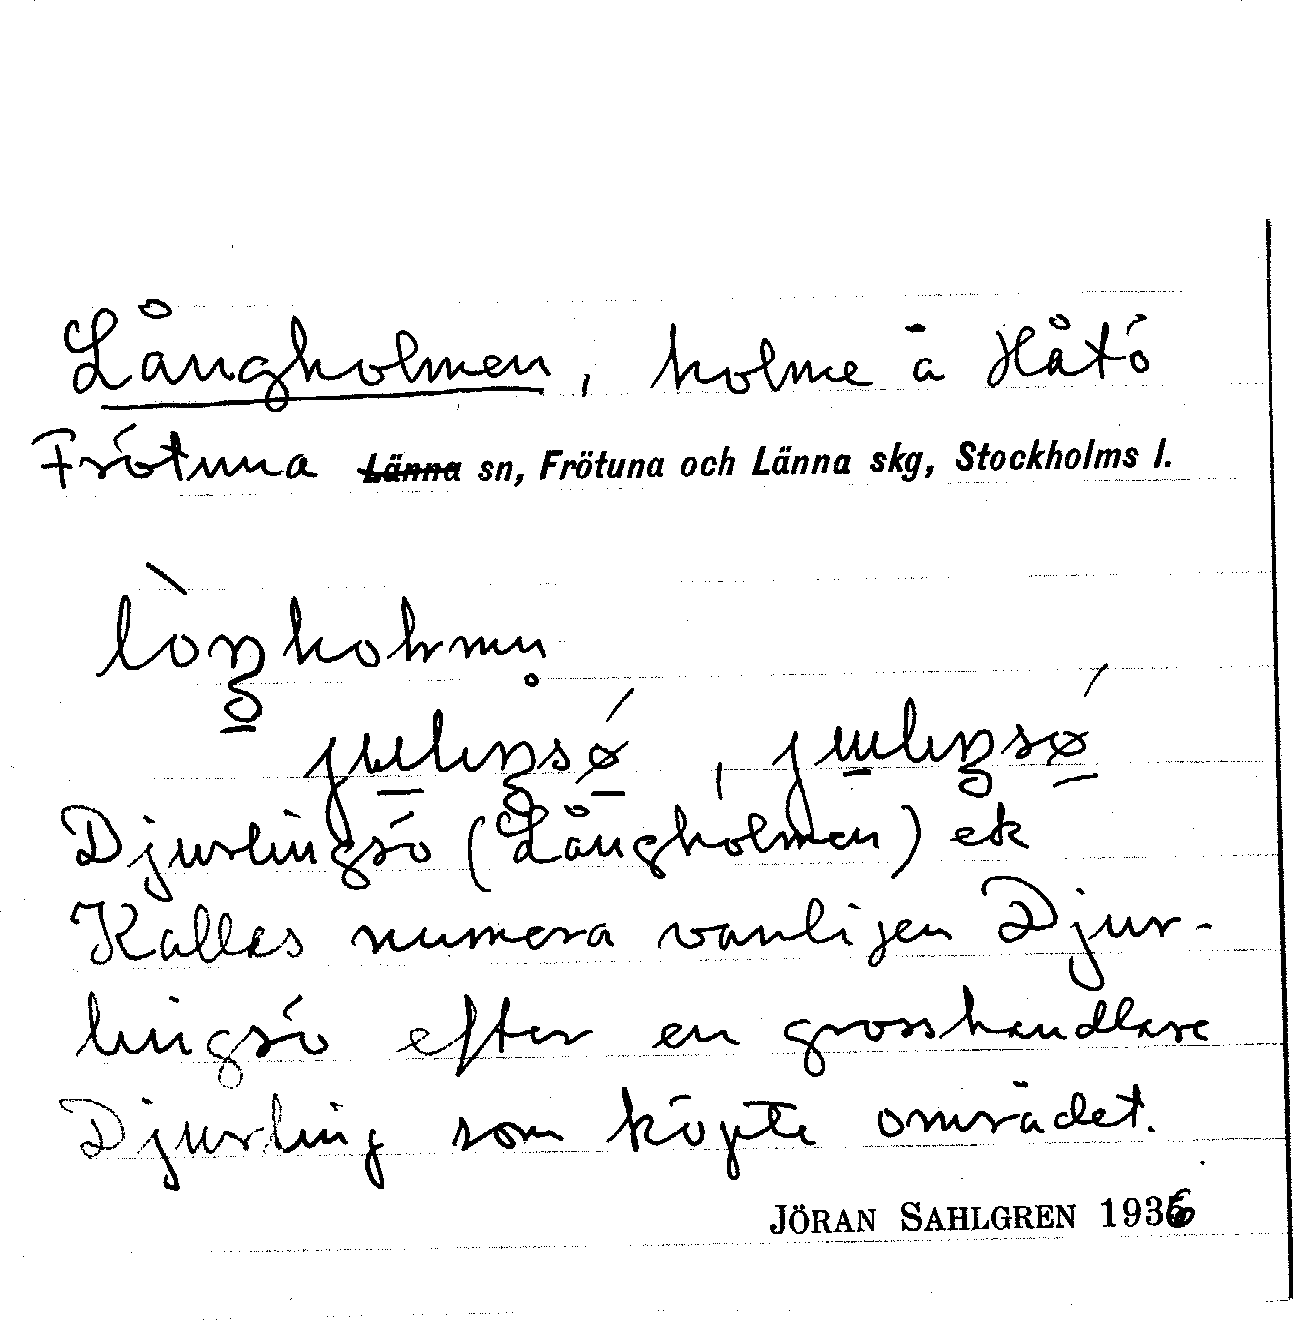 Långholmen, holme å Håtö
Frötuna Länna sn, Frötuna och Länna skg, Stockholms l.
Djurlingsö (Långholmen) ek
Kallas numera vanligen Djur-
lingsö efter en grosshandlare
Djurling som köpte området.
JÖRAN SAHLGREN 1936